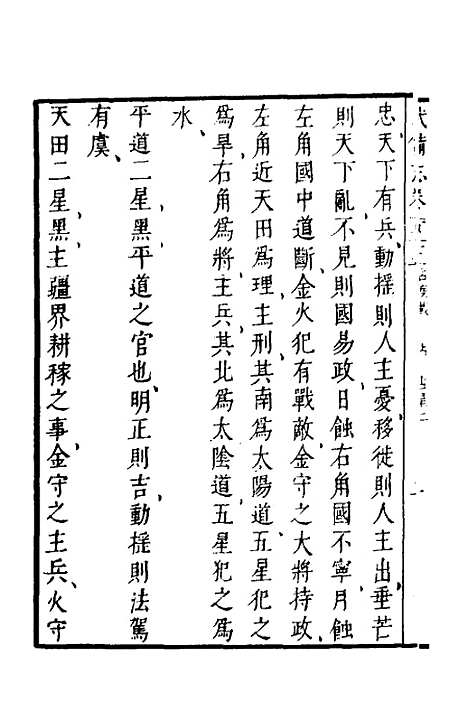 武備志卷
忠天下有兵動揺則人主憂移徙則人主出垂芒
則天下亂不見則國易政日蝕右角國不寧月蝕
左角國中道斷金火犯有戰敵金守之大將持政
左角近天田為理主刑其南為太陽道五星犯之
為旱右角為將主兵其北為太陰道五星犯之為
水
平道二星黑平道之官也明正則吉動揺則法駕
有虞
天田二星黑主疆界耕稼之事金守之主兵火守